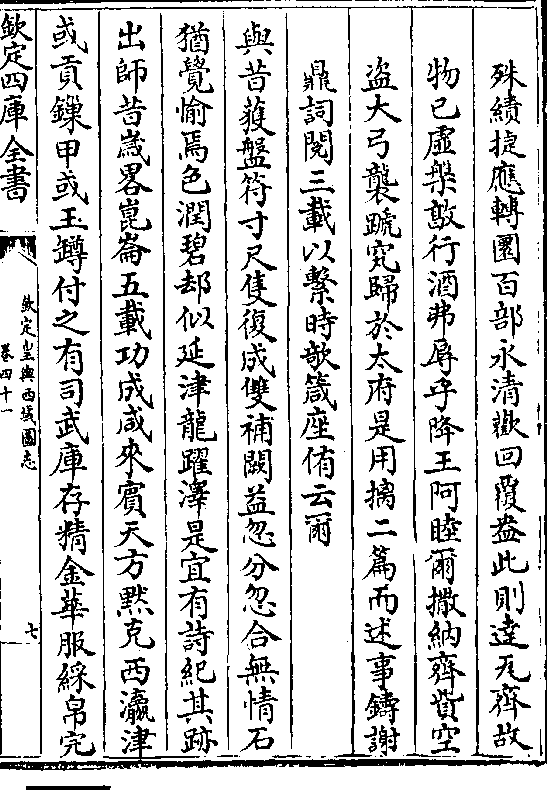 殊績捷應轉圜百部永清歡回覆盎此則達瓦齊故
物已虛槃敦行酒弗辱乎降王阿睦爾撒納齊貲空
盜大弓襲蹏究歸於太府是用摛二篇而述事鑄謝
鼎詞閱三載以繫時歌箴座侑云爾
與昔䕶盤符寸尺隻復成雙補闕益忽分忽合無情石
猶覺愉焉色潤碧却似延津龍躍澤是宜有詩紀其跡
出師昔歲畧崑崙五載功成咸來賓天方黙克西瀛津
或貢鏁甲或玉罇付之有司武庫存精金華服綵帛完
欽定四庫全書
欽定皇輿西域圖志
卷四十一
七